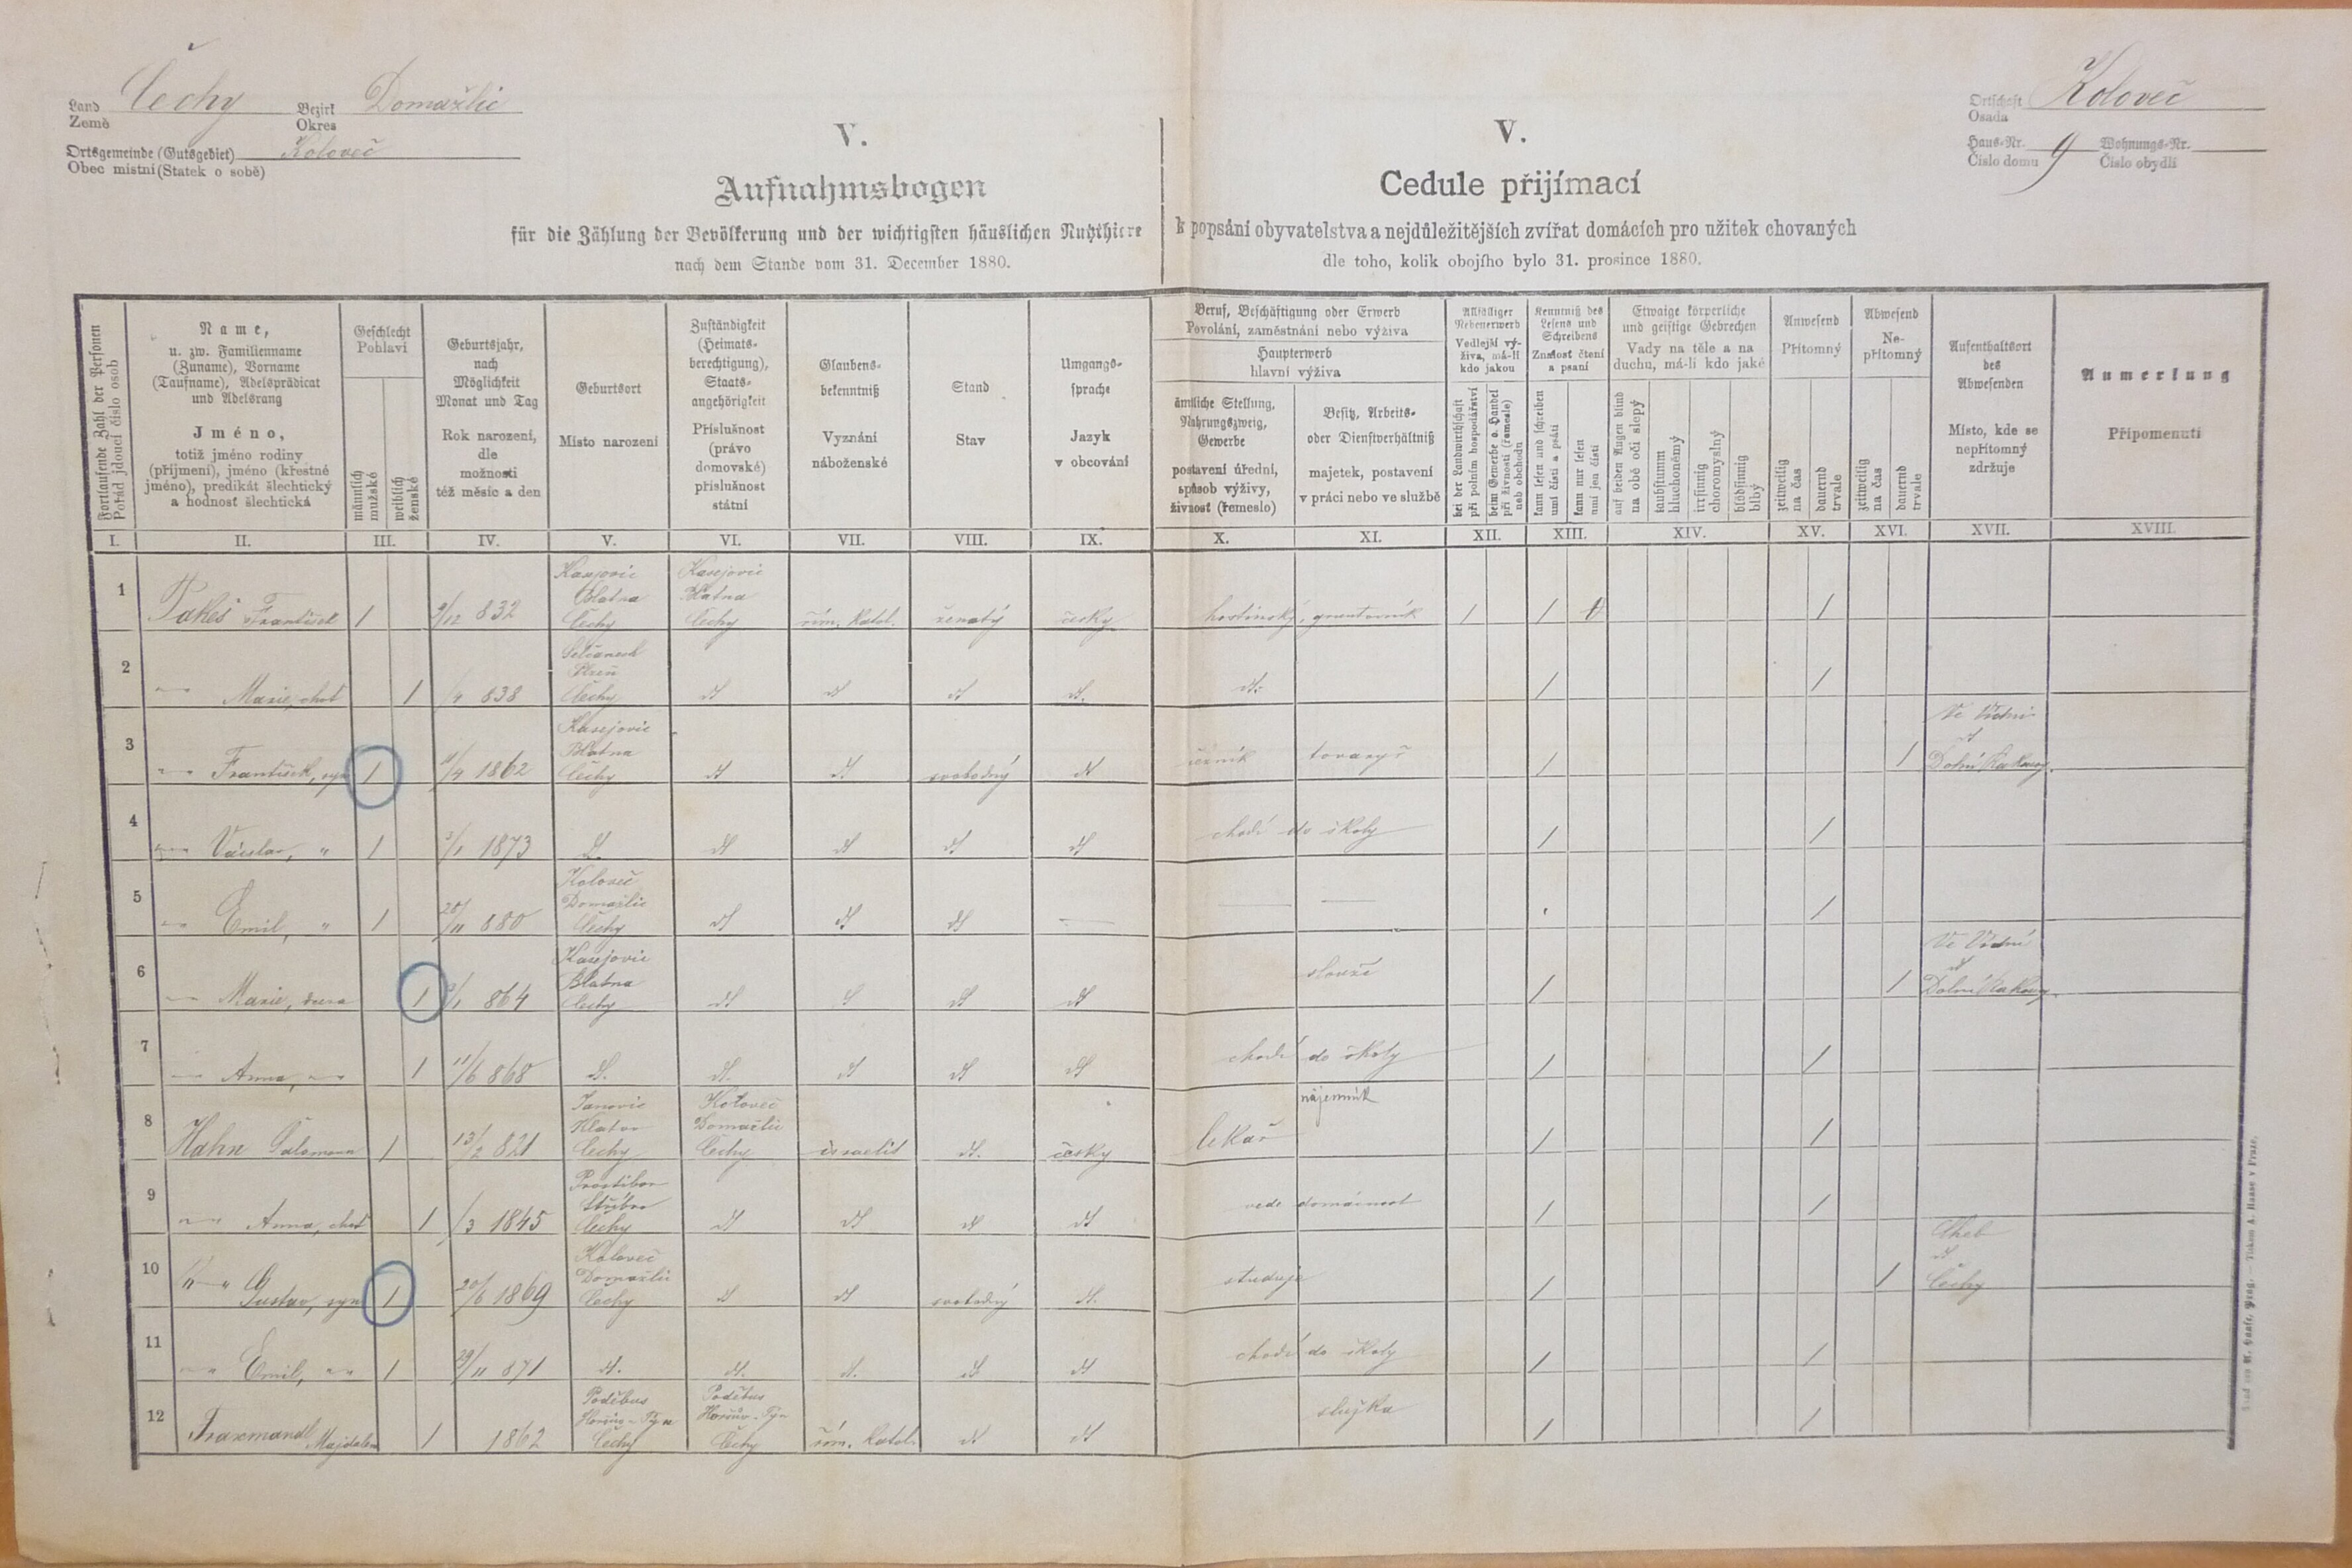 Land Čechy Bezirk Domažlic
Země Okres
Ortsgemeinde (Gutsgebiet) Koloveč
Obec místní (Statek o sobě)
V.
Aufnahmsbogen
für die Zählung der Bevölkerung und der wichtigsten häuslichen Nutzthiere
nach dem Stande vom 31. December 1880.
V.
Cedule přijímací
k popsání obyvatelstva a nejdůležitějších zvířat domácích pro užitek chovaných
dle toho, kolik obojího bylo 31. prosince 1880.
Ortschaft Koloveč
Osada
Haus-Nr. 9 Wohnungs-Nr.
Číslo domu Číslo obydlí
Fortlaufende Zahl der Personen
Pořád jdoucí číslo osob
Name,
u. zw. Familienname
(Zuname), Vorname
(Taufname), Adelsprädicat
und Adelsrang
Jméno,
totiž jméno rodiny
(příjmení), jméno (křestné
jméno), predikát šlechtický
a hodnosť šlechtická
Geschlecht
Pohlaví
männlich
mužské
weiblich
ženské
Geburtsjahr,
nach
Möglichkeit
Monat und Tag
Rok narození,
dle
možnosti
též měsíc a den
Geburtsort
Místo narození
Zuständigkeit
(Heimats-
berechtigung),
Staats-
angehörigkeit
Příslušnost
(právo
domovské)
příslušnost
státní
Glaubens-
bekenntniß
Vyznání
náboženské
Stand
Stav
Umgangs-
sprache
Jazyk
v obcování
Beruf, Beschäftigung oder Erwerb
Povolání, zaměstnání nebo výživa
Haupterwerb
hlavní výživa
ämtliche Stellung,
Nahrungszweig,
Gewerbe
postavení úřední,
spůsob výživy,
živnosť (řemeslo)
Besitz, Arbeits-
oder Dienstverhältniß
majetek, postavení
v práci nebo ve službě
Allfälliger
Nebenerwerb
Vedlejší vý-
živa, má-li
kdo jakou
bei der Landwirthschaft
při polním hospodářství
beim Gewerbe o. Handel
při živnosti (řemesle)
neb obchodu
Kenntniß des
Lesens und
Schreibens
Znalost čtení
a psaní
kann lesen und schreiben
umí čísti a psáti
kann nur lesen
umí jen čísti
Etwaige körperliche
und geistige Gebrechen
Vady na těle a na
duchu, má-li kdo jaké
auf beiden Augen blind
na obě oči slepý
taubstumm
hluchoněmý
irrsinnig
choromyslný
blödsinnig
blbý
Anwesend
Přítomný
zeitweilig
na čas
dauernd
trvale
Abwesend
Ne-
přítomný
zeitweilig
na čas
dauernd
trvale
Aufenthaltsort
des
Abwesenden
Místo, kde se
nepřítomný
zdržuje
Anmerkung
Připomenutí
I. II. III. IV. V. VI. VII. VIII. IX. X. XI. XII. XIII. XIV. XV. XVI. XVII. XVIII.
Kasejovic Kasejovic
Blatna Blatna
1 František 1 9/12 832 Čechy Čechy řím. katol. ženatý česky hostinský, gruntovník 1 1 1
Plzeň
2 Marie, choť 1 /4 838 Čechy dt dt dt dt. dt. 1 1
Kasejovic Ve Vídni
Blatna
3 František, syn 1 /4 1862 Čechy dt dt svobodný dt řezník tovaryš 1 1
4 Václav, " 1 3/1 1873 dt. dt dt dt dt chodí do školy 1 1
Koloveč
Domažlic
5 Emil, " 1 28/11 880 Čechy dt dt dt — — — 1
Kasejovic Ve Vídni
Blatna
6 Marie, dcera 1 /1 864 Čechy dt dt dt dt slouží 1 1
7 Anna, 1 11/6 868 dt. dt. dt dt dt chodí do školy 1 1
Janovic Koloveč nájemník
Klatov Domažlic
8 Hahn Salamoun 1 13/2 821 Čechy Čechy israelit dt. česky lekař 1 1
Prostibor
Stříbro
9 Anna, choť 1 /3 1845 Čechy dt dt dt dt vede domácnost 1 1
Koloveč Cheb
Domažlic dt
10 Gustav, syn 1 20/6 1869 Čechy dt dt svobodný dt. studuje 1 1 Čechy
11 Emil, 1 29/11 871 dt. dt. dt. dt dt chodí do školy 1 1
Poděbus Poděbus
Horšův-Týn Horšův-Týn
12 Majdalena 1 1862 Čechy Čechy řím. katol. dt dt služka 1 1
Druck von A. Haase, Prag. — Tiskem A. Haase v Praze.